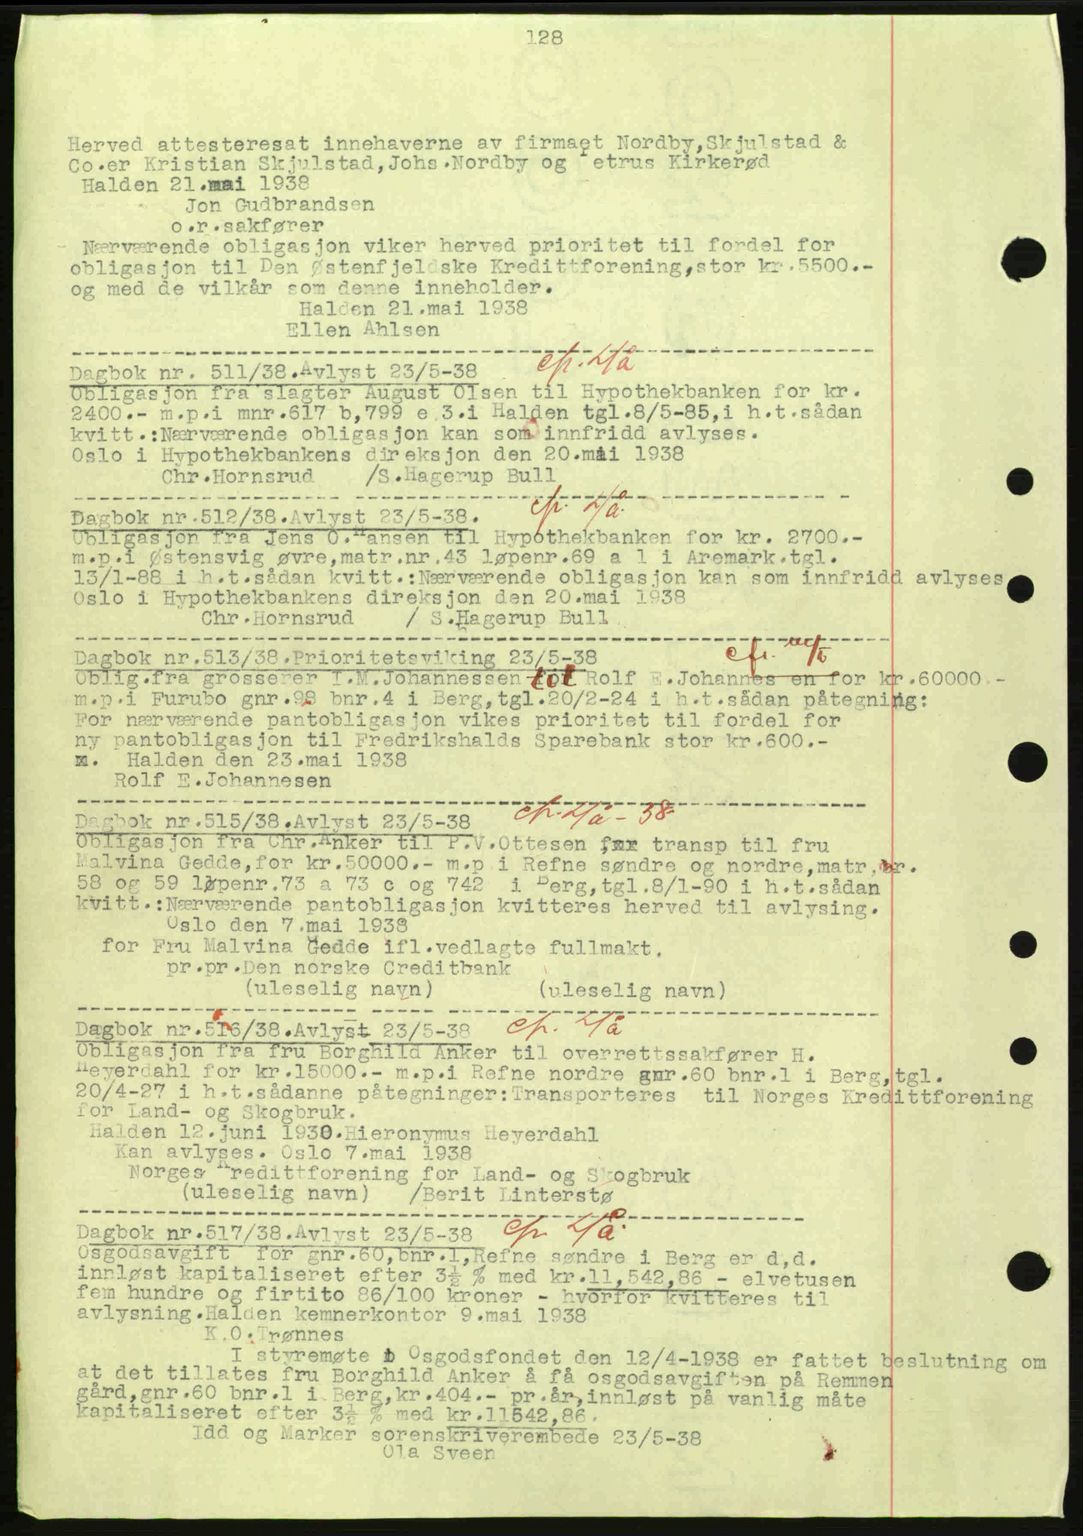 128
Herved attesteresat innehaverne av firmaet Nordby,Skjulstad &
Co.er Kristian Skjulstad,Johs.Nordby og Petrus Kirkerød
Halden 21.mai 1938
Jon Gudbrandsen
o.r.sakfører
Nærværende obligasjon viker herved prioritet til fordel for
obligasjon til Den Østenfjeldske Kredittforening,stor kr.5500.-
og med de vilkår som denne inneholder.
Halden 21.mai 1938
Ellen Ahlsen
Dagbok nr. 511/38.Avlyst 23/5-38 cfr. 2/å
Obligasjon fra slagter August Olsen til Hypothekbanken for kr.
2400.- m.p.i mnr.617 b,799 e 3.i Halden tgl.8/5-85,i h.t.sådan
kvitt.:Nærværende obligasjon kan som innfridd avlyses.
Oslo i Hypothekbankens direksjon den 20.mai 1938
Chr.Hornsrud /S.Hagerup Bull
Dagbok nr.512/38.Avlyst 23/5-38. cfr. 2/å.
Obligasjon fra Jens O.Hansen til Hypothekbanken for kr. 2700.-
m.p.i Østensvig øvre,matr.nr.43 løpenr.69 a 1 i Aremark.tgl.
13/1-88 i h.t.sådan kvitt.:Nærværende obligasjon kan som innfridd avlyses
Oslo i Hypothekbankens direksjon den 20.mai 1938
Chr.Hornsrud / S.Hagerup Bull
Dagbok nr.513/38.Prioritetsviking 23/5-38 cfr.
Oblig.fra grosserer I.M.Johannessen til Rolf E.Johannes en for kr.60000.-
m.p.i Furubo gnr.98 bnr.4 i Berg,tgl.20/2-24 i h.t.sådan påtegning:
For nærværende pantobligasjon vikes prioritet til fordel for
ny pantobligasjon til Fredrikshalds Sparebank stor kr.600.-
Halden den 23.mai 1938
Rolf E.Johannesen
Dagbok nr.515/38.Avlyst 23/5-38 cfr. 2/å - 38
Obligasjon fra Chr.Anker til P.V.Ottesen transp til fru
Malvina Gedde,for kr.50000.- m.p.i Refne søndre og nordre,matr.nr.
58 og 59 løpenr.73 a 73 c og 742 i Berg,tgl.8/1-90 i h.t.sådan
kvitt.:Nærværende pantobligasjon kvitteres herved til avlysing.
Oslo den 7.mai 1938
for Fru Malvina Gedde ifl.vedlagte fullmakt.
pr.pr.Den norske Creditbank
(uleselig navn) (uleselig navn)
Dagbok nr.516/38.Avlyst 23/5-38 cfr. 2/å
Obligasjon fra fru Borghild Anker til overrettssakfører H.
Heyerdahl for kr.15000.- m.p.i Refne nordre gnr.60 bnr.1 i Berg,tgl.
20/4-27 i h.t.sådanne påtegninger:Transporteres til Norges Kredittforening
for Land- og Skogbruk.
Halden 12.juni 1930.Hieronymus Heyerdahl
Kan avlyses. Oslo 7.mai 1938
Norges Kredittforening for Land- og Skogbruk
(uleselig navn) /Berit Linterstø
Dagbok nr.517/38.Avlyst 23/5-38 cfr 2/å.
Osgodsavgift for gnr.60,bnr.1,Refne søndre i Berg er d,d.
innløst kapitaliseret efter 3½ % med kr.11,542,86 - elvetusen
fem hundre og firtito 86/100 kroner - hvorfor kvitteres til
avlysning.Halden kemnerkontor 9.mai 1938
K.O.Trønnes
I styremøte i Osgodsfondet den 12/4-1938 er fattet beslutning om
at det tillates fru Borghild Anker å få osgodsavgiften på Remmen
gård,gnr.60 bnr.1 i Berg,kr.404.- pr.år,innløst på vanlig måte
kapitaliseret efter 3½ % med kr.11542,86.
Idd og Marker sorenskriverembede 23/5-38
Ola Sveen